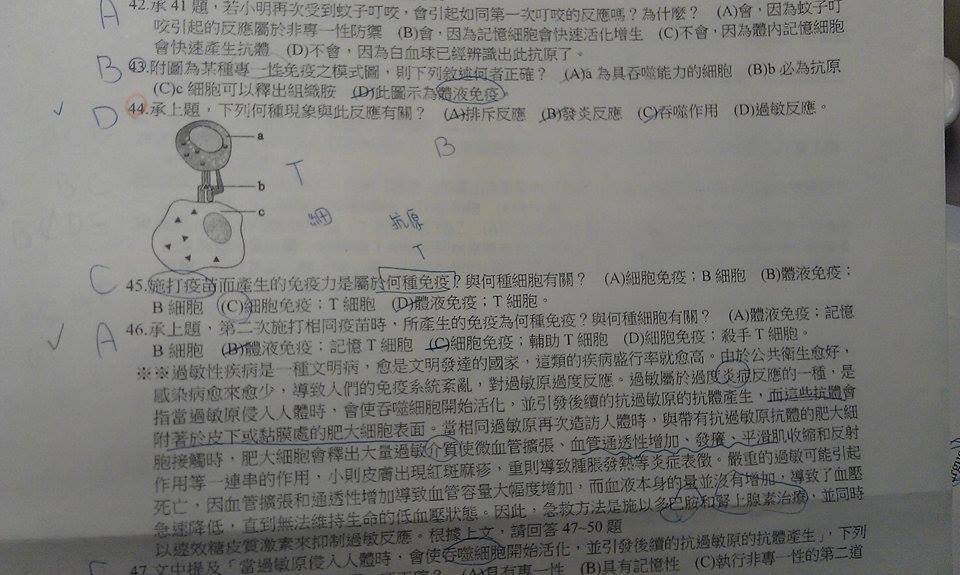 A 42.承 41 題，若小明再次受到蚊子叮咬，會引起如同第一次叮咬的反應嗎？為什麼？ (A)會，因為蚊子叮
咬引起的反應屬於非專一性防禦 (B)會，因為記憶細胞會快速活化增生 (C)不會，因為體內記憶細胞
會快速產生抗體 (D)不會，因為白血球已經辨識出此抗原了。
B 43.附圖為某種專一性免疫之模式圖，則下列敘述何者正確？ (A)a 為具吞噬能力的細胞 (B)b 必為抗原
(C)c 細胞可以釋出組織胺 (D)此圖示為體液免疫。
D 44.承上題，下列何種現象與此反應有關？ (A)排斥反應 (B)發炎反應 (C)吞噬作用 (D)過敏反應。
a
B
T
b
c
細
抗原
T
C 45.施打疫苗而產生的免疫力是屬於何種免疫？與何種細胞有關？ (A)細胞免疫；B 細胞 (B)體液免疫；
B 細胞 (C)細胞免疫；T 細胞 (D)體液免疫；T 細胞。
A 46.承上題，第二次施打相同疫苗時，所產生的免疫為何種免疫？與何種細胞有關？ (A)體液免疫；記憶
B 細胞 (B)體液免疫；記憶 T 細胞 (C)細胞免疫；輔助 T 細胞 (D)細胞免疫；殺手 T 細胞。
※※過敏性疾病是一種文明病，愈是文明發達的國家，這類的疾病盛行率就愈高。由於公共衛生愈好，
感染病愈來愈少，導致人們的免疫系統紊亂，對過敏原過度反應。過敏屬於過度炎症反應的一種，是
指當過敏原侵入人體時，會使吞噬細胞開始活化，並引發後續的抗過敏原的抗體產生，而這些抗體會
附著於皮下或黏膜處的肥大細胞表面。當相同過敏原再次造訪人體時，與帶有抗過敏原抗體的肥大細
胞接觸時，肥大細胞會釋出大量過敏介質使微血管擴張、血管通透性增加、發癢、平滑肌收縮和反射
作用等一連串的作用，小則皮膚出現紅斑麻疹，重則導致腫脹發熱等炎症表徵。嚴重的過敏可能引起
死亡，因血管擴張和通透性增加導致血管容量大幅度增加，而血液本身的量並沒有增加，導致了血壓
急速降低，直到無法維持生命的低血壓狀態。因此，急救方法是施以多巴胺和腎上腺素治療，並同時
以速效糖皮質激素來抑制過敏反應。根據上文，請回答 47~50 題
47.文中提及「當過敏原侵入人體時，會使吞噬細胞開始活化，並引發後續的抗過敏原的抗體產生」，下列
(A)具有專一性 (B)具有記憶性 (C)執行非專一性的第二道